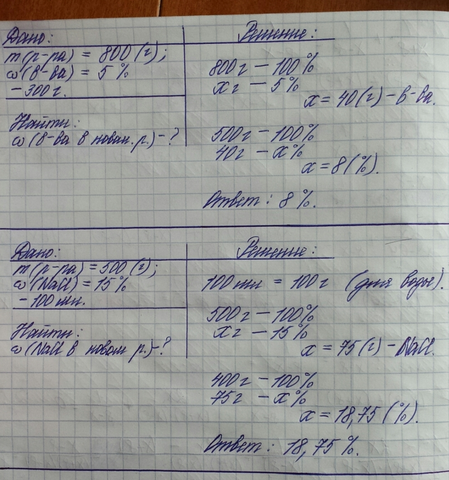 Дано:
m(р-ра) = 800 (г);
ω(в-ва) = 5 %
- 300 г.
Найти:
ω(в-ва в новом. р.) - ?
Решение:
800 г - 100 %
x г - 5 %
x = 40 (г) - в-ва.
500 г - 100 %
40 г - x %
x = 8 (%).
Ответ: 8 %.
Дано:
m(р-ра) = 500 (г);
ω(NaCl) = 15 %
- 100 мл.
Найти:
ω(NaCl в новом р.) - ?
Решение:
100 мл = 100 г (для воды).
500 г - 100 %
x г - 15 %
x = 75 (г) - NaCl.
400 г - 100 %
75 г - x %
x = 18,75 (%).
Ответ: 18,75 %.